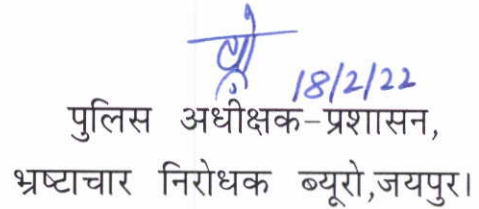 18/2/22
पुलिस अधीक्षक-प्रशासन,
भ्रष्टाचार निरोधक ब्यूरो,जयपुर।